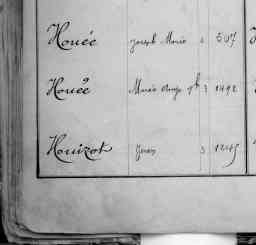 Houée Joseph Marie 507
Houée Marie Ange 3 1492
Houizot Jean 3 1245